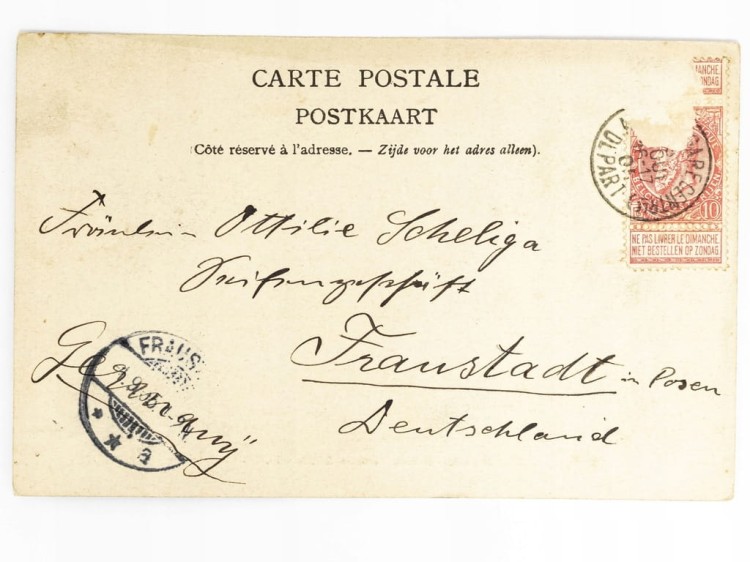 CARTE POSTALE
POSTKAART
(Côté réservé à l'adresse. — Zijde voor het adres alleen).
MANCHE
ZONDAG
GARE CENTRALE
DEPART
10
NE PAS LIVRER LE DIMANCHE
NIET BESTELLEN OP ZONDAG
Fräulein Ottilie Scheliga
Seifengeschäft
Fraustadt in Posen
Deutschland
Germany
FRAUS
a